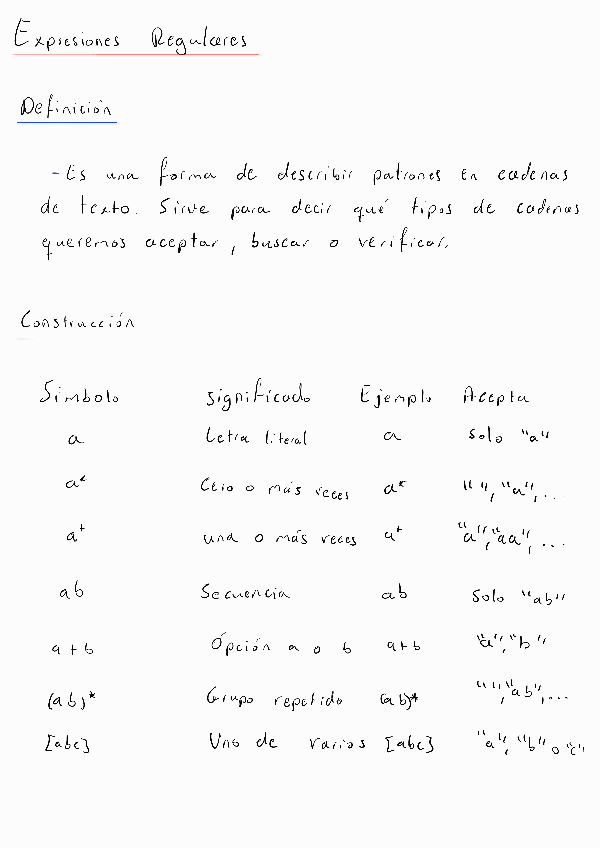 Expresiones Regulares
Definición
- Es una forma de describir patrones en cadenas
de texto. Sirve para decir qué tipos de cadenas
queremos aceptar, buscar o verificar.
Construcción
Símbolo significado Ejemplo Acepta
a Letra literal a solo "a"
a* Cero o más veces a* "", "a", ...
a⁺ una o más veces a⁺ "a", "aa", ...
ab Secuencia ab Solo "ab"
a+b Opción a o b a+b "a", "b"
(ab)* Grupo repetido (ab)* "", "ab", ...
[abc] Uno de varios [abc] "a", "b" o "c"